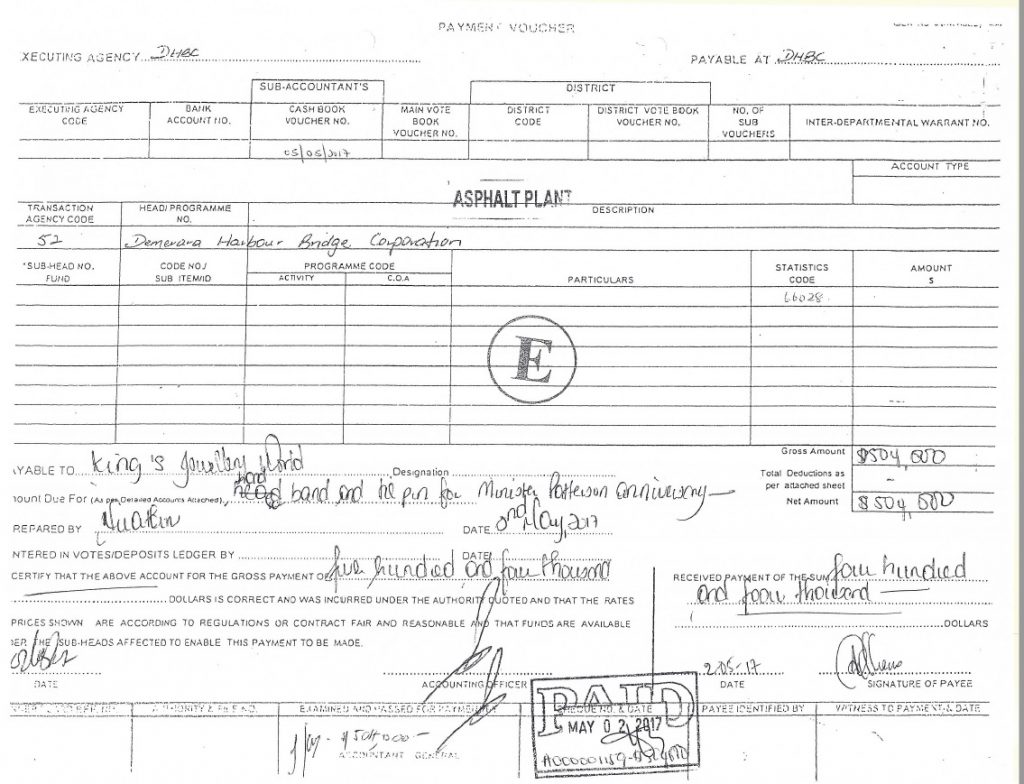 PAYMENT VOUCHER
XECUTING AGENCY DHBC
PAYABLE AT DHBC
SUB-ACCOUNTANT'S
DISTRICT
EXECUTING AGENCY CODE
BANK ACCOUNT NO.
CASH BOOK VOUCHER NO.
MAIN VOTE BOOK VOUCHER NO.
DISTRICT CODE
DISTRICT VOTE BOOK VOUCHER NO.
NO. OF SUB VOUCHERS
INTER-DEPARTMENTAL WARRANT NO.
05/05/2017
ACCOUNT TYPE
ASPHALT PLANT
TRANSACTION AGENCY CODE
HEAD/PROGRAMME NO.
DESCRIPTION
52 Demerara Harbour Bridge Corporation
*SUB-HEAD NO. FUND
CODE NO./ SUB ITEM/ID
PROGRAMME CODE
ACTIVITY
C.O.A
PARTICULARS
STATISTICS CODE
AMOUNT $
L6028
E
Gross Amount $504,000
YABLE TO King's Jewellery World
Designation
Total Deductions as per attached sheet -
ount Due For (As per Detailed Accounts Attached) hand band and tie pin for Minister Patterson anniversary
Net Amount $504,000
REPARED BY
DATE 2nd May, 2017
NTERED IN VOTES/DEPOSITS LEDGER BY
DATE
CERTIFY THAT THE ABOVE ACCOUNT FOR THE GROSS PAYMENT OF five hundred and four thousand
DOLLARS IS CORRECT AND WAS INCURRED UNDER THE AUTHORITY QUOTED AND THAT THE RATES
PRICES SHOWN ARE ACCORDING TO REGULATIONS OR CONTRACT FAIR AND REASONABLE AND THAT FUNDS ARE AVAILABLE
DER THE SUB-HEADS AFFECTED TO ENABLE THIS PAYMENT TO BE MADE.
RECEIVED PAYMENT OF THE SUM four hundred
and four thousand
DOLLARS
DATE
ACCOUNTING OFFICER
2-05-17
DATE
SIGNATURE OF PAYEE
AUTHORITY & FILE NO.
EXAMINED AND PASSED FOR PAYMENT
CHEQUE NO. & DATE
PAYEE IDENTIFIED BY
WITNESS TO PAYMENT & DATE
$504,000-
ACCOUNTANT GENERAL
PAID
MAY 02 2017